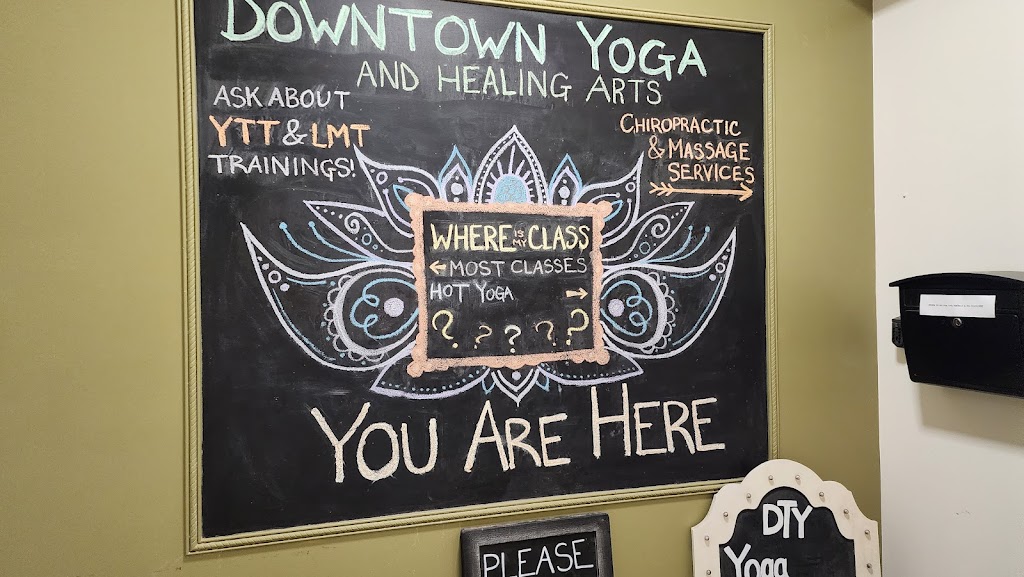 DOWNTOWN YOGA
AND HEALING ARTS
ASK ABOUT
YTT & LMT
TRAININGS!
CHIROPRACTIC
& MASSAGE
SERVICES
WHERE IS MY CLASS
← MOST CLASSES
HOT YOGA →
? ? ? ? ?
YOU ARE HERE
PLEASE
DTY
Yoga